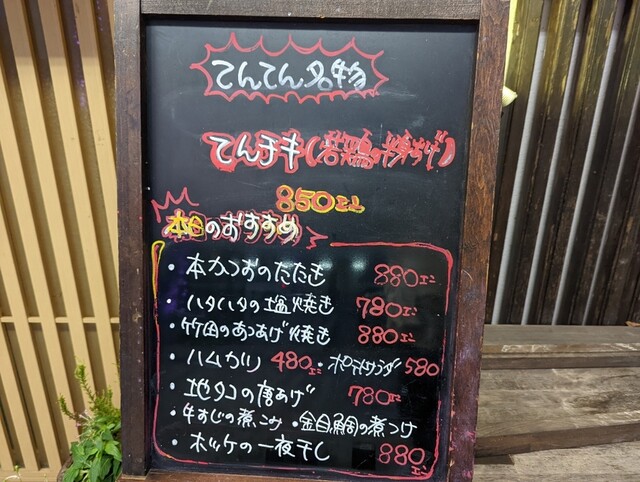 てんてん名物
てんチキ(若鶏の焼あげ)
850エン
本日のおすすめ
・本かつおのたたき 880エン
・ハタハタの塩焼き 780エン
・竹田のあつあげ焼き 880エン
・ハムカツ 480エン・ポテトサラダ 580
・地タコの唐あげ 780エン
・牛すじの煮こみ ・金目鯛の煮つけ
・ホッケの一夜干し 880エン